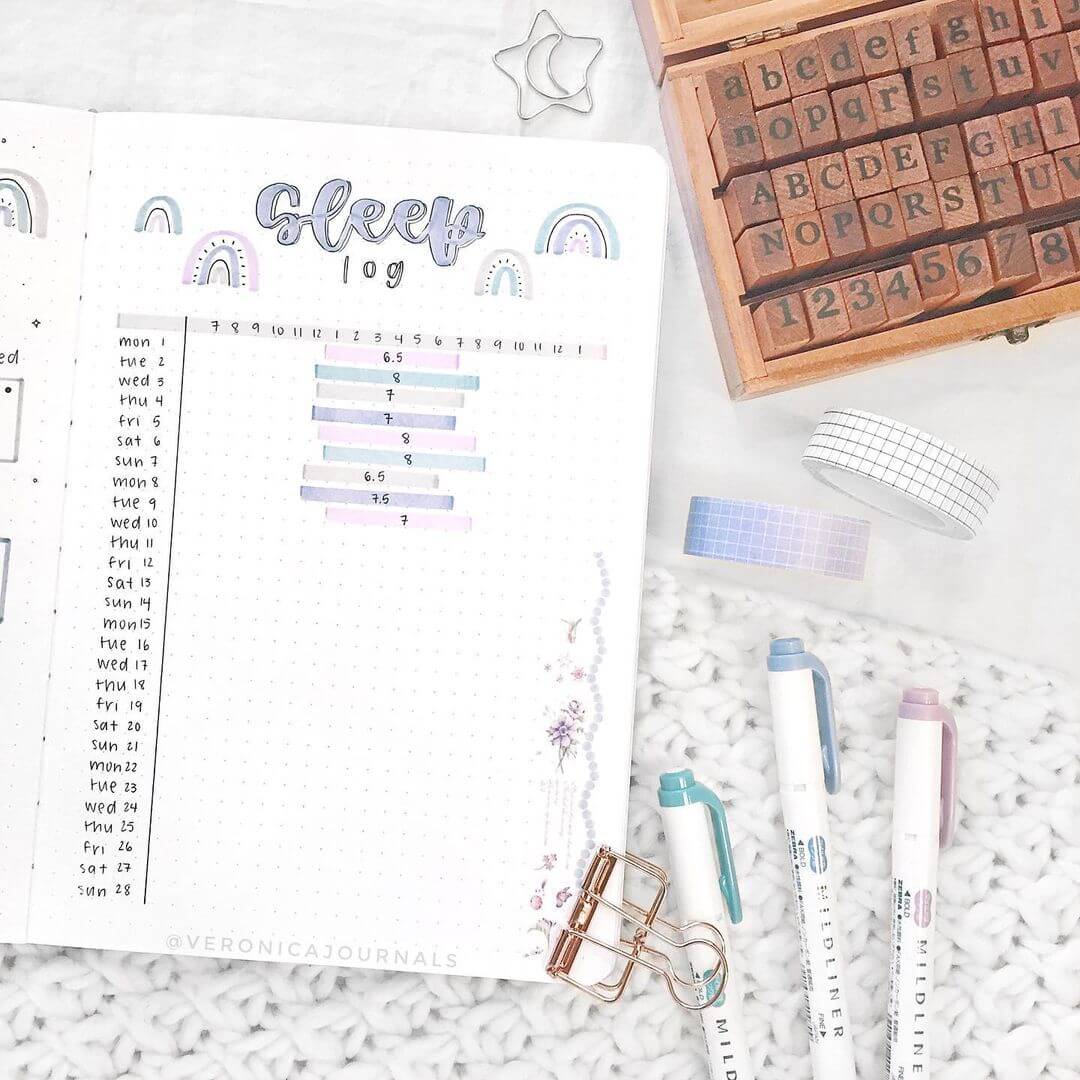 sleep
log
7 8 9 10 11 12 1 2 3 4 5 6 7 8 9 10 11 12 1
mon 1
6.5
tue 2
8
wed 3
7
thu 4
7
fri 5
8
sat 6
8
sun 7
6.5
mon 8
7.5
tue 9
7
wed 10
thu 11
fri 12
sat 13
sun 14
mon 15
tue 16
wed 17
thu 18
fri 19
sat 20
sun 21
mon 22
tue 23
wed 24
thu 25
fri 26
sat 27
sun 28
@VERONICAJOURNALS
ed
a b c d e f g h i
n o p q r s t u v
A B C D E F G H I
N O P Q R S T U V
1 2 3 4 5 6 7 8
BOLD
ZEBRA
MILDLINER
FINE
BOLD
ZEBRA
MILDL
MILD